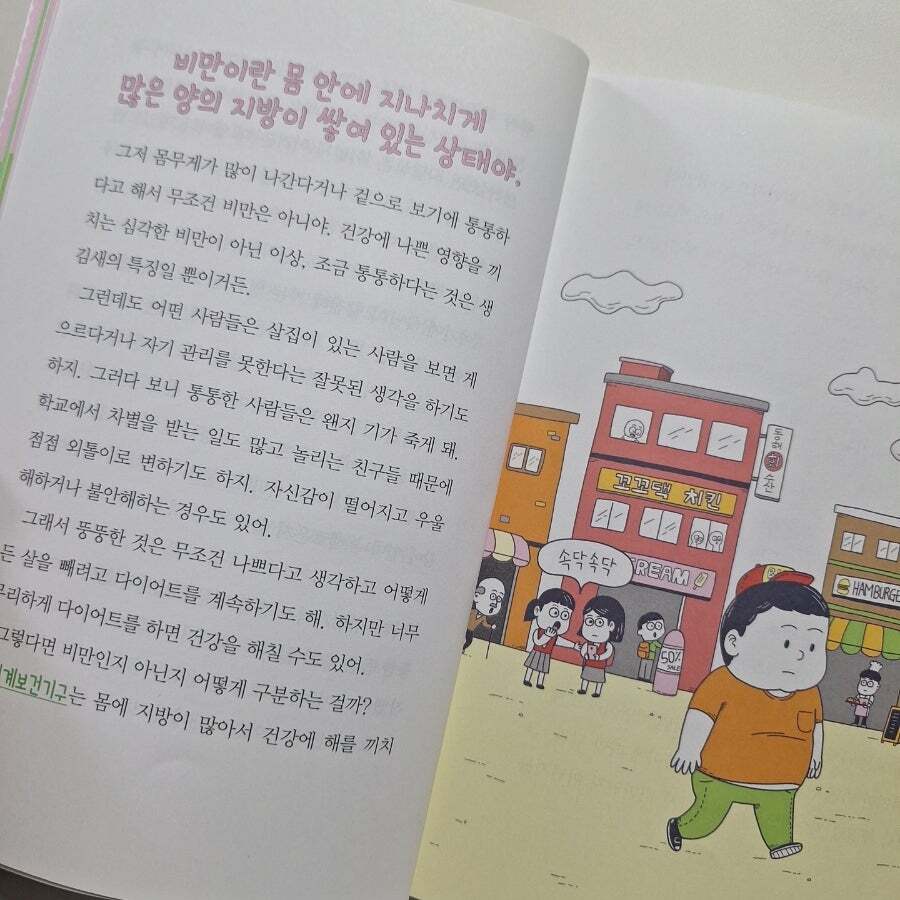 비만이란 몸 안에 지나치게
많은 양의 지방이 쌓여 있는 상태야.
그저 몸무게가 많이 나간다거나 겉으로 보기에 통통하
다고 해서 무조건 비만은 아니야. 건강에 나쁜 영향을 끼
치는 심각한 비만이 아닌 이상, 조금 통통하다는 것은 생
김새의 특징일 뿐이거든.
그런데도 어떤 사람들은 살집이 있는 사람을 보면 게
으르다거나 자기 관리를 못한다는 잘못된 생각을 하기도
하지. 그러다 보니 통통한 사람들은 왠지 기가 죽게 돼.
학교에서 차별을 받는 일도 많고 놀리는 친구들 때문에
점점 외톨이로 변하기도 하지. 자신감이 떨어지고 우울
해하거나 불안해하는 경우도 있어.
그래서 뚱뚱한 것은 무조건 나쁘다고 생각하고 어떻게
든 살을 빼려고 다이어트를 계속하기도 해. 하지만 너무
무리하게 다이어트를 하면 건강을 해칠 수도 있어.
그렇다면 비만인지 아닌지 어떻게 구분하는 걸까?
계보건기구는 몸에 지방이 많아서 건강에 해를 끼치
동해
수산
꼬꼬댁 치킨
속닥속닥
REAM
HAMBURGE
50%
SALE